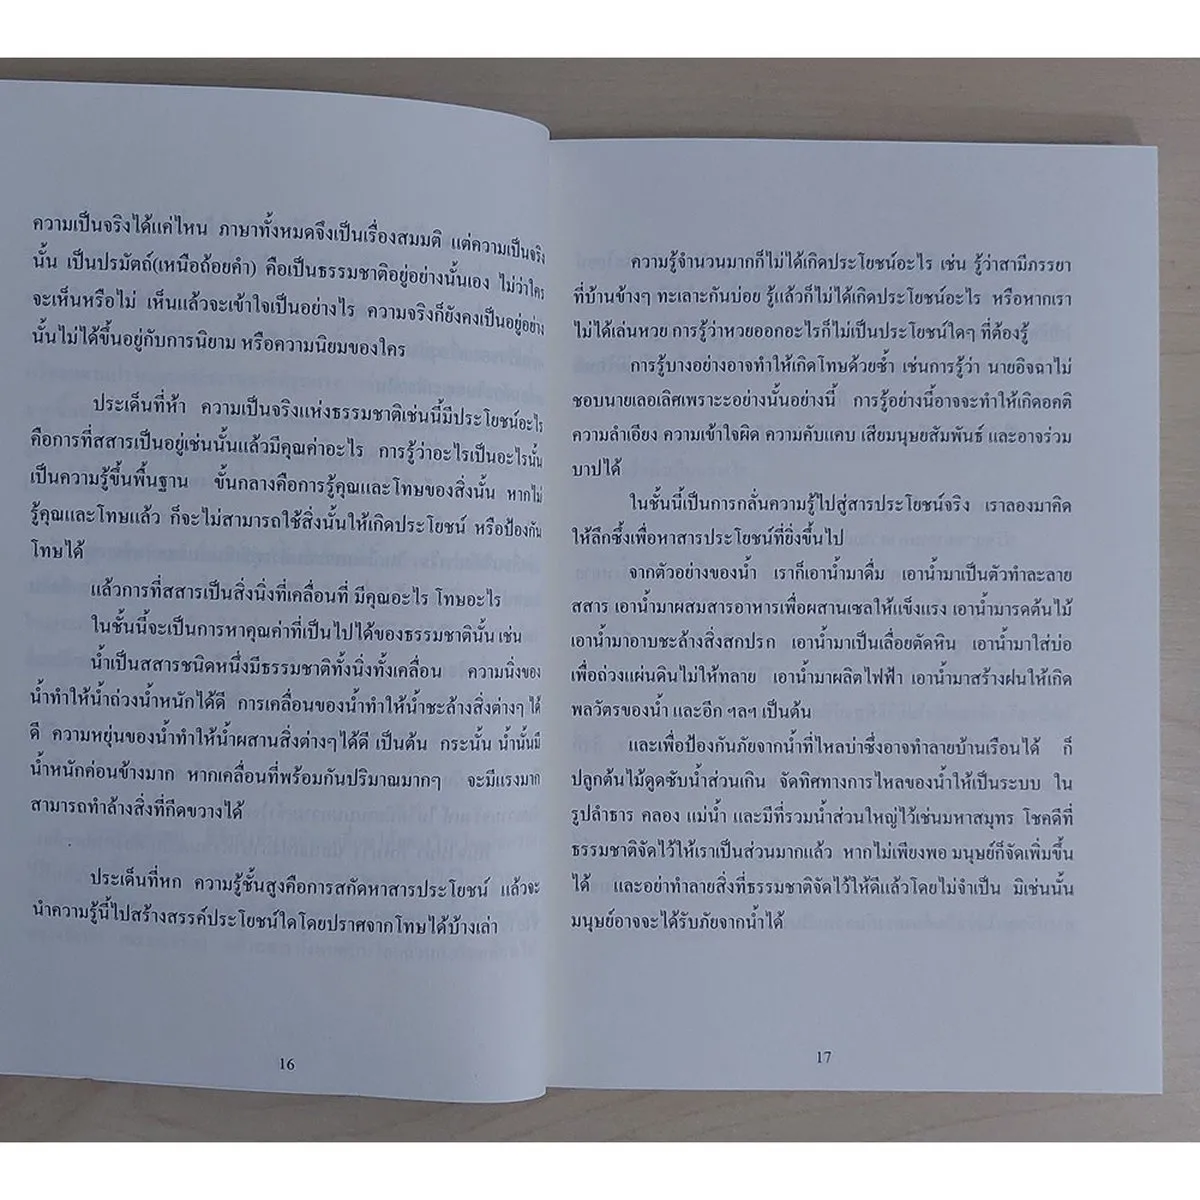 ความเป็นจริงได้แค่ไหน ภาษาทั้งหมดจึงเป็นเรื่องสมมติ แต่ความเป็นจริง
นั้น เป็นปรมัตถ์(เหนือถ้อยคำ) คือเป็นธรรมชาติอยู่อย่างนั้นเอง ไม่ว่าใคร
จะเห็นหรือไม่ เห็นแล้วจะเข้าใจเป็นอย่างไร ความจริงก็ยังคงเป็นอยู่อย่าง
นั้นไม่ได้ขึ้นอยู่กับการนิยาม หรือความนิยมของใคร
ประเด็นที่ห้า ความเป็นจริงแห่งธรรมชาติเช่นนี้มีประโยชน์อะไร
คือการที่สสารเป็นอยู่เช่นนั้นแล้วมีคุณค่าอะไร การรู้ว่าอะไรเป็นอะไรนั้น
เป็นความรู้ขั้นพื้นฐาน ขั้นกลางคือการรู้คุณและโทษของสิ่งนั้น หากไม่
รู้คุณและโทษแล้ว ก็จะไม่สามารถใช้สิ่งนั้นให้เกิดประโยชน์ หรือป้องกัน
โทษได้
แล้วการที่สสารเป็นสิ่งนิ่งที่เคลื่อนที่ มีคุณอะไร โทษอะไร
ในชั้นนี้จะเป็นการหาคุณค่าที่เป็นไปได้ของธรรมชาตินั้น เช่น
น้ำเป็นสสารชนิดหนึ่งมีธรรมชาติทั้งนิ่งทั้งเคลื่อน ความนิ่งของ
น้ำทำให้น้ำถ่วงน้ำหนักได้ดี การเคลื่อนของน้ำทำให้น้ำชะล้างสิ่งต่างๆ ได้
ดี ความหยุ่นของน้ำทำให้น้ำผสานสิ่งต่างๆได้ดี เป็นต้น กระนั้น น้ำนั้นมี
น้ำหนักค่อนข้างมาก หากเคลื่อนที่พร้อมกันปริมาณมากๆ จะมีแรงมาก
สามารถทำล้างสิ่งที่กีดขวางได้
ประเด็นที่หก ความรู้ชั้นสูงคือการสกัดหาสารประโยชน์ แล้วจะ
นำความรู้นี้ไปสร้างสรรค์ประโยชน์ใดโดยปราศจากโทษได้บ้างเล่า
16
ความรู้จำนวนมากก็ไม่ได้เกิดประโยชน์อะไร เช่น รู้ว่าสามีภรรยา
ที่บ้านข้างๆ ทะเลาะกันบ่อย รู้แล้วก็ไม่ได้เกิดประโยชน์อะไร หรือหากเรา
ไม่ได้เล่นหวย การรู้ว่าหวยออกอะไรก็ไม่เป็นประโยชน์ใดๆ ที่ต้องรู้
การรู้บางอย่างอาจทำให้เกิดโทษด้วยซ้ำ เช่นการรู้ว่า นายอิจฉาไม่
ชอบนายเลอเลิศเพราะะอย่างนั้นอย่างนี้ การรู้อย่างนี้อาจจะทำให้เกิดอคติ
ความลำเอียง ความเข้าใจผิด ความคับแคบ เสียมนุษยสัมพันธ์ และอาจร่วม
บาปได้
ในชั้นนี้เป็นการกลั่นความรู้ไปสู่สารประโยชน์จริง เราลองมาคิด
ให้ลึกซึ้งเพื่อหาสารประโยชน์ที่ยิ่งขึ้นไป
จากตัวอย่างของน้ำ เราก็เอาน้ำมาดื่ม เอาน้ำมาเป็นตัวทำละลาย
สสาร เอาน้ำมาผสมสารอาหารเพื่อผสานเซลให้แข็งแรง เอาน้ำมารดต้นไม้
เอาน้ำมาอาบชะล้างสิ่งสกปรก เอาน้ำมาเป็นเลื่อยตัดหิน เอาน้ำมาใส่บ่อ
เพื่อถ่วงแผ่นดินไม่ให้ทลาย เอาน้ำมาผลิตไฟฟ้า เอาน้ำมาสร้างฝนให้เกิด
พลวัตรของน้ำ และอีก ฯลฯ เป็นต้น
และเพื่อป้องกันภัยจากน้ำที่ไหลบ่าซึ่งอาจทำลายบ้านเรือนได้ ก็
ปลูกต้นไม้ดูดซับน้ำส่วนเกิน จัดทิศทางการไหลของน้ำให้เป็นระบบ ใน
รูปลำธาร คลอง แม่น้ำ และมีที่รวมน้ำส่วนใหญ่ไว้เช่นมหาสมุทร โชคดีที่
ธรรมชาติจัดไว้ให้เราเป็นส่วนมากแล้ว หากไม่เพียงพอ มนุษย์ก็จัดเพิ่มขึ้น
ได้ และอย่าทำลายสิ่งที่ธรรมชาติจัดไว้ให้ดีแล้วโดยไม่จำเป็น มิเช่นนั้น
มนุษย์อาจจะได้รับภัยจากน้ำได้
17